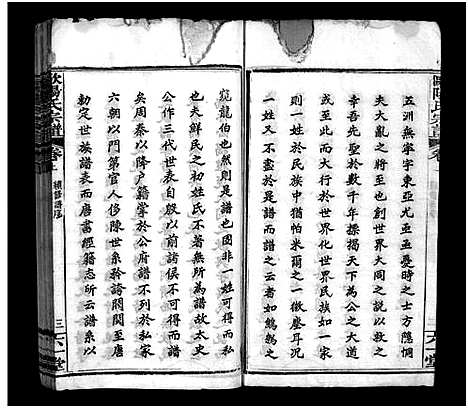 五洲無寧宇東亞尤岌岌憂時之士方隱惻
夫大亂之將至也創世界大同之說以談
太平聖於數千年揉禍天下為公之大道
將行於世界化世界民族如一國如一家
一姓於民族中猶怕米爾之一微塵耳況
是譜又一姓之一分而譜之云者如鷦鷯之
窺龍伯也然則是譜也固非一姓可得而私
也夫鮮民之初姓氏不著無所為譜故太史
公作三代世表自殷以前諸侯不可得而譜
矣周秦以降户籍掌於公府譜不列於私家
六朝以門第官人侈陳世系矜誇閥閱至唐
勅定世族譜表而唐書經籍志所云譜系以
歐陽氏宗譜
卷首
續修譜序
三
六一堂
歐陽氏宗譜
六一堂